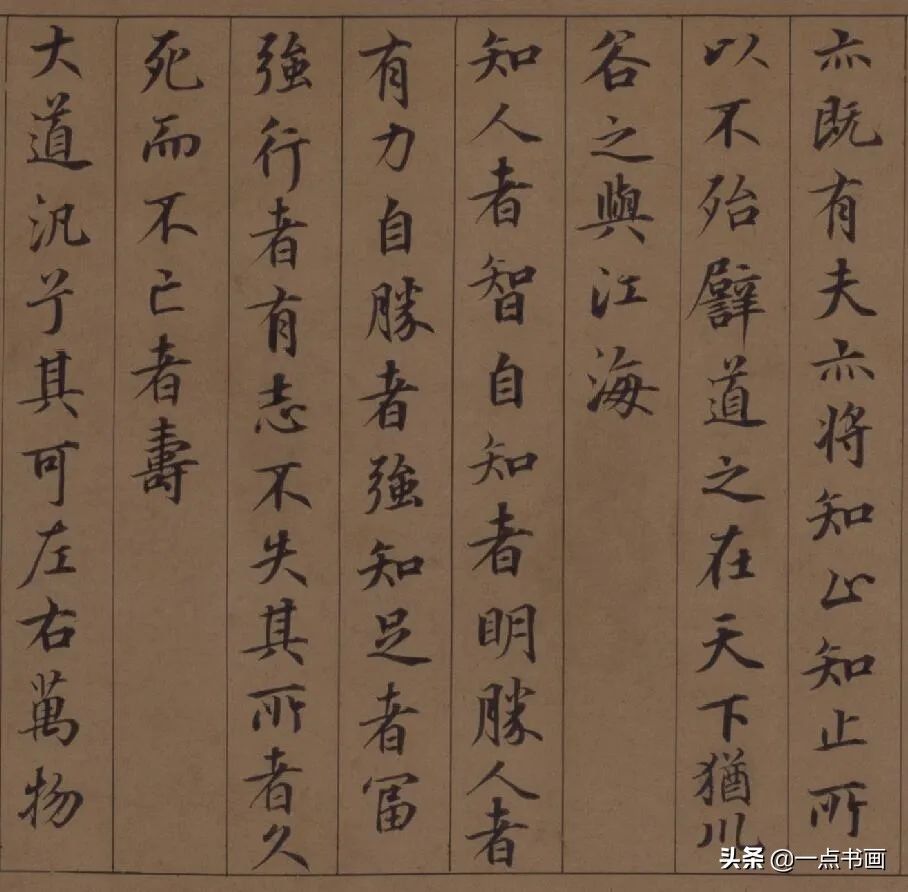 亦既有夫亦将知止知止所
以不殆譬道之在天下猶川
谷之與江海
知人者智自知者明勝人者
有力自勝者強知足者富
強行者有志不失其所者久
死而不亡者壽
大道汎兮其可左右萬物
头条 @一点书画